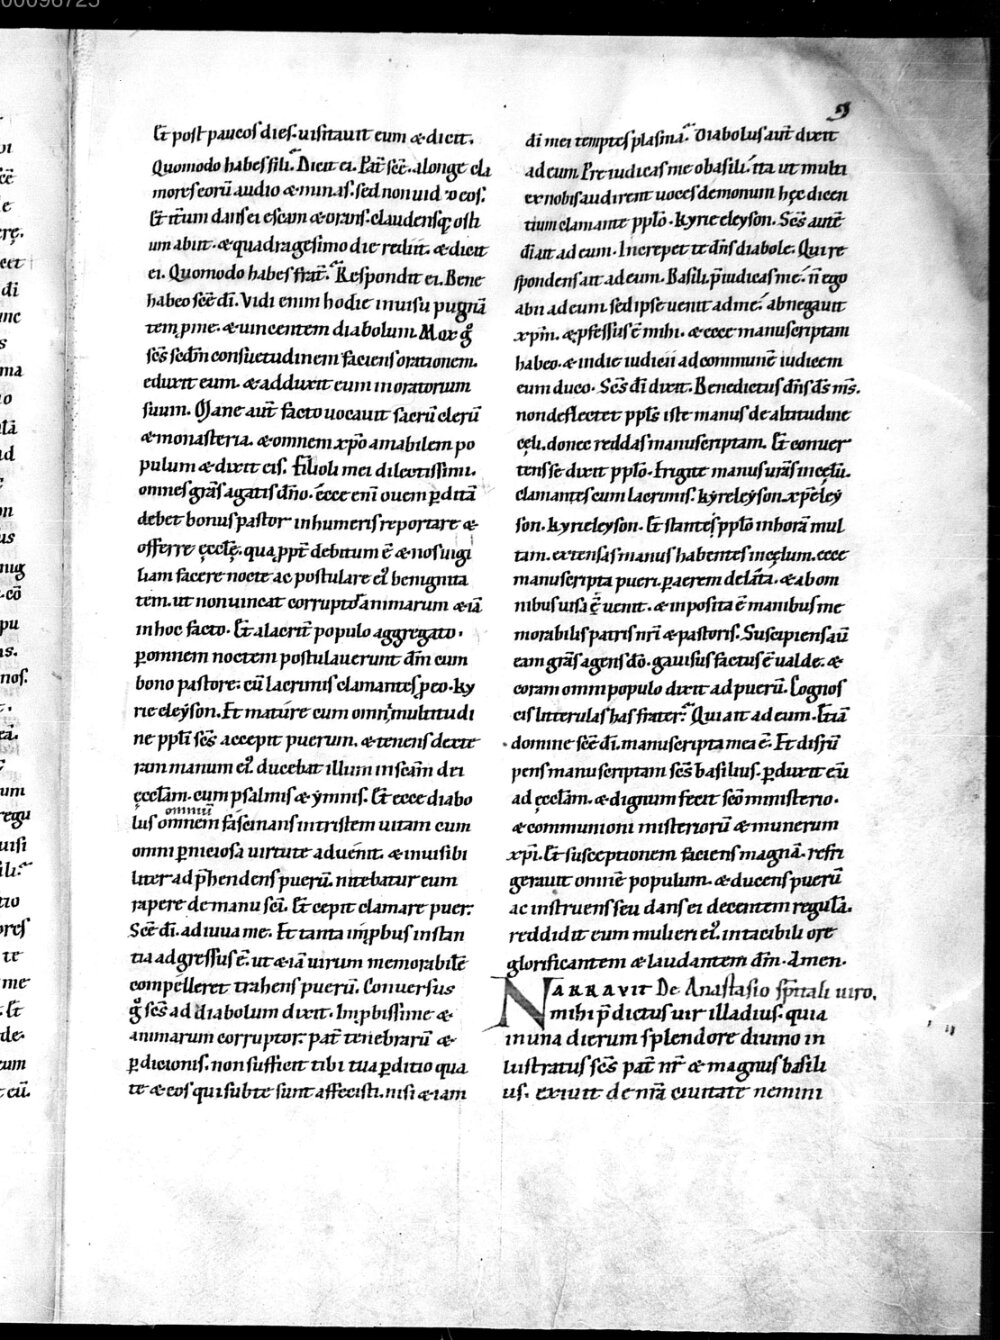 00096725
9
Et post paucos dies. uisitauit eum & dicit.
Quomodo habes fili. Dicit ei. Pat̄ sc̄e. alonge cla
mores eorū audio & minas. sed non uideo eos.
Et it̄um dans ei escam & orans. claudensq; osti
um abiit. & quadragesimo die rediit. & dicit
ei. Quomodo habes frat̄. Respondit ei. Bene
habeo sc̄e dī. Vidi enim hodie inuisu pugnā
tem pme. & uincentem diabolum. Mox g̊
sc̄s sedm̄ consuetudinem faciens orationem.
eduxit eum. & adduxit eum in oratorium
suum. Mane aut̄ facto uocauit sacrū clerū
& monasteria. & omnem xp̄o amabilem po
pulum & dixit eis. Filioli mei dilectissimi.
omnes grās agatis dn̄o. Ecce eni ouem p̄ditā
debet bonus pastor in humeris reportare &
offerre ęcclę̄. qua pp̄t debitum ē & nos uigi
liam facere nocte ac postulare ei' benignita
tem. ut non uincat corruptor animarum & iā
in hoc facto. Et alacerit̄ populo aggregato.
p̄ omnem noctem postulauerunt dm̄ cum
bono pastore. cū lacrimis clamantes p eo. ky
rie eleyson. Et mature cum omni multitudi
ne pp̄li sc̄s accepit puerum. & tenens dexte
ram manum ei' ducebat illum in sc̄am dei
ęccl̄am. cum psalmis & ymnis. Et ecce diabo
omniū
lus omnem fascinans in tristem uitam cum
omni p̄niciosa uirtute aduenit. & inuisibi
liter adp̄hendens puerū. nitebatur eum
rapere de manu sc̄i. Et cepit clamare puer.
Sc̄e dī. adiuua me. Et tanta imp̱bus instan
tia adgressus ē. ut & iā uirum memorabilē
compelleret trahens puerū. Conuersus
g̊ sc̄s ad diabolum dixit. Impbissime &
animarum corruptor. pat̄ tenebrarū &
p̄dicionis. non sufficit tibi tua p̄ditio qua
te & eos qui sub te sunt affecisti. nisi & iam
dī mei temptes plasma. Diabolus aut̄ dixit
ad eum. Pre iudicas me o basili. ita ut multi
ex nobis audirent uoces demonum hęc dicen
tium clamante pp̄lo. kyrie eleyson. Sc̄s autē
di ait ad eum. Increpet te dn̄s diabole. Qui re
spondens ait ad eum. Basili. p̄iudicas me. n̄ ego
abii ad eum. sed ipse uenit ad me. abnegauit
xpm̄. & pfessus ē mihi. & ecce manuscriptam
habeo. & in die iudicii ad communē iudicem
eum duco. Sc̄s dī dixit. Benedictus dn̄s ds̄ ms̄.
non deflectet pp̄ls iste manus de altitudine
cęli. donec reddas manuscriptam. Et conuer
tens se dixit pp̄lo. Erigite manus urās in cęlū.
clamantes cum lacrimis. kyreleyson. xp̄eley
son. kyrieleyson. Et stantes pp̄lo in horā mul
tam. extensas manus habentes in cęlum. ecce
manuscripta pueri. p̄ aerem delāta. & ab om
nibus uisa ē uenit. & inposita ē manibus me
morabilis patris nr̄i & pastoris. Suscipiens aū
eam grās agens dō. gauisus factus ē ualde. &
coram omni populo dixit ad puerū. Cognos
cis litterulas has frater. Qui ait ad eum. Etiā
domine sc̄e dī. manuscripta mea ē. Et disrū
pens manuscriptam sc̄s basilius. p̄duxit eū
ad ęccl̄am. & dignum fecit sc̄o ministerio.
& communioni misteriorū & munerum
xpī. Et susceptionem faciens magnā. refri
gerauit omnē populum. & ducens puerū
ac instruens seu dans ei decentem regulā.
reddidit eum mulieri ei'. intacibili ore
glorificantem & laudantem dm̄. Amen.
NARRAVIT De Anastasio spītali uiro.
mihi p̄dictus uir illadius. quia
in una dierum splendore diuino in
lustratus sc̄s pat̄ nr̄ & magnus basili
us. exiuit de nr̄a ciuitate nemini